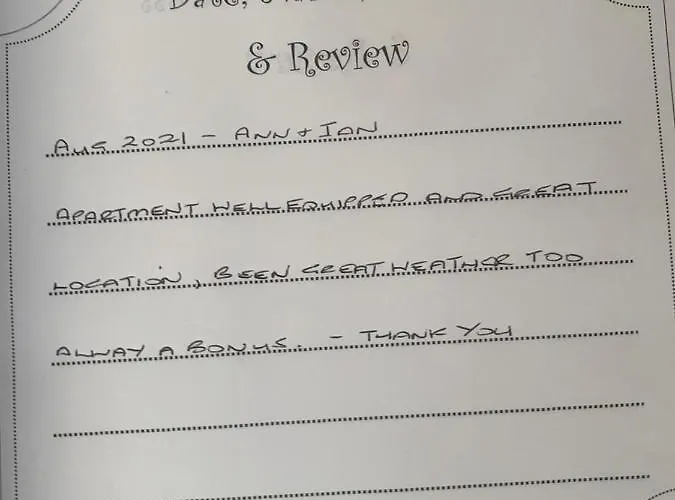 Date,
& Review
AUG 2021 - ANN + IAN
APARTMENT WELL EQUIPPED AND GREAT
LOCATION, BEEN GREAT WEATHER TOO
ALWAY A BONUS. - THANK YOU